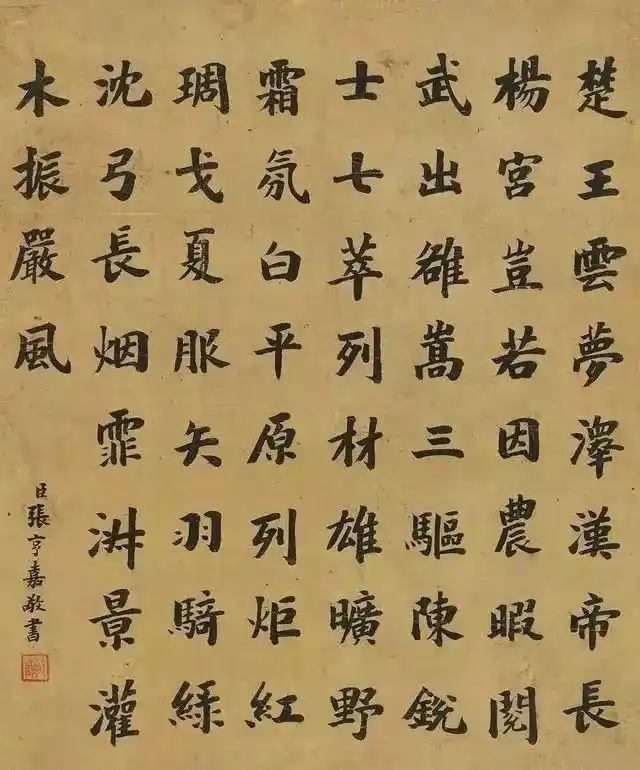 楚王雲夢澤漢帝長
楊宮豈若因農暇閱
武出雒嵩三驅陳銳
士七萃列材雄曠野
霜氛白平原列炬紅
琱戈夏服矢羽騎綠
沈弓長烟霏泋景灌
木振嚴風
臣張亨嘉敬書